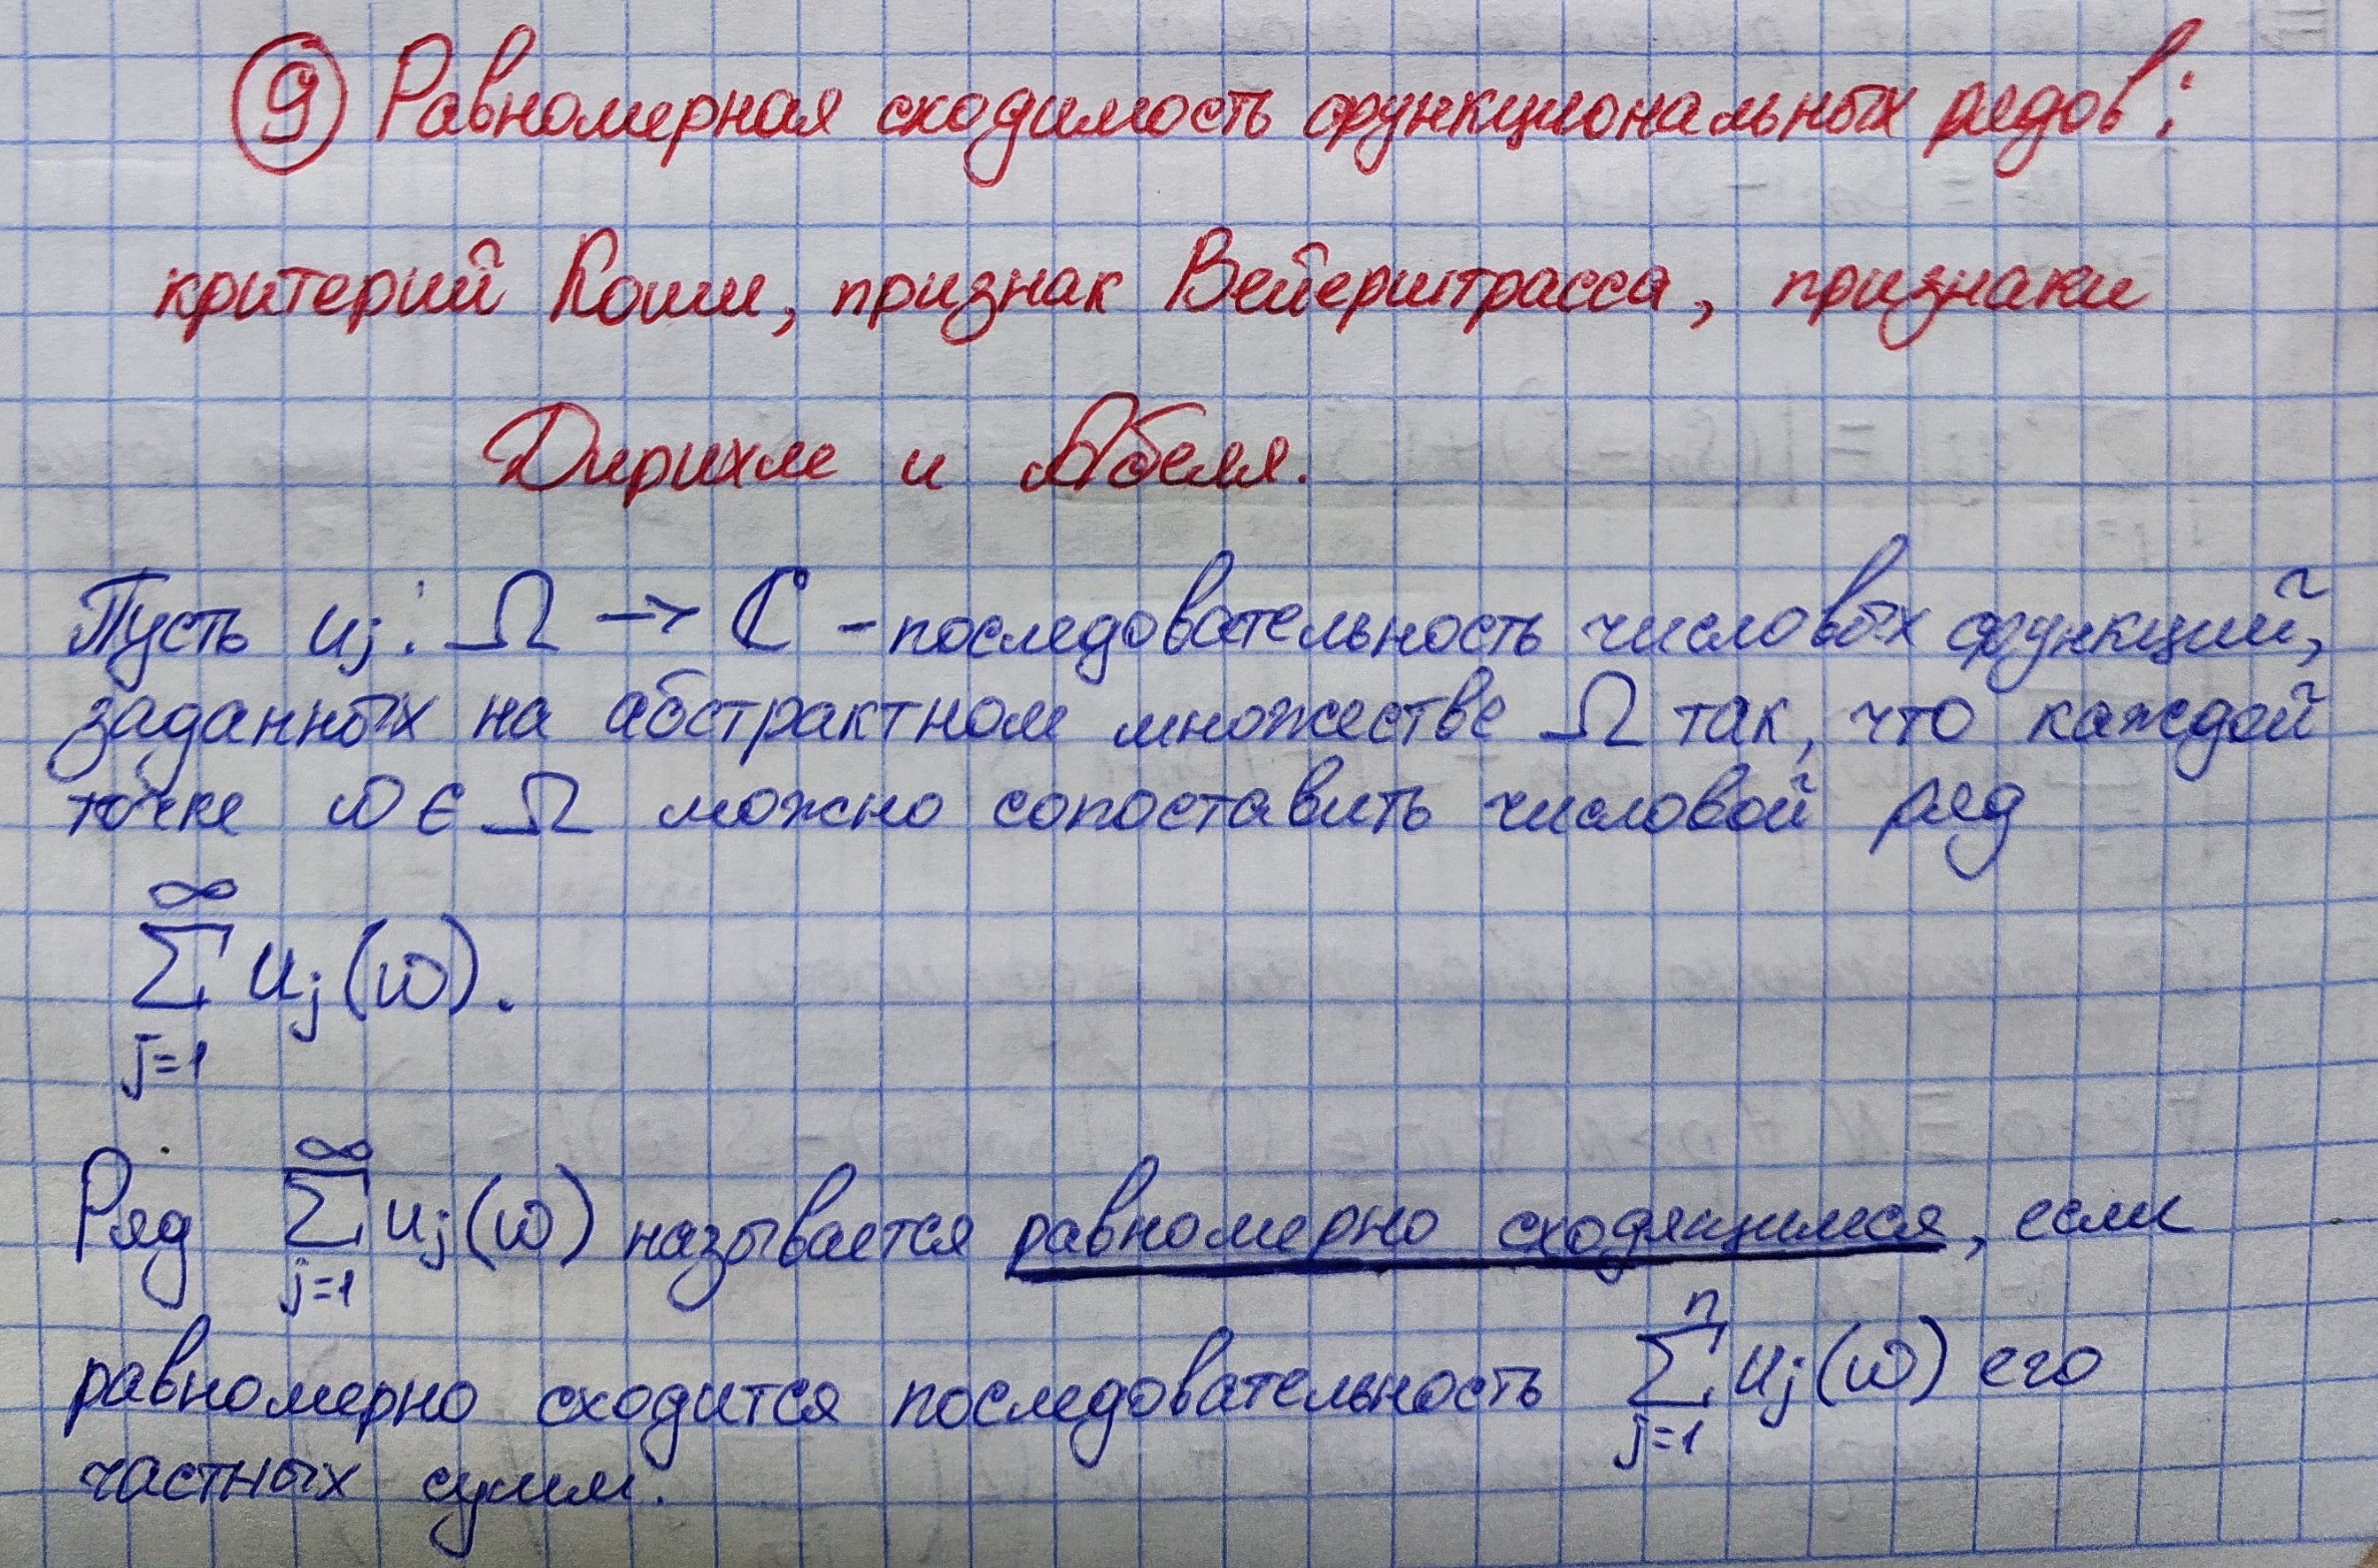 ⑨ Равномерная сходимость функциональных рядов:
критерий Коши, признак Вейерштрасса, признаки
Дирихле и Абеля.
Пусть uⱼ: Ω → ℂ - последовательность числовых функций,
заданных на абстрактном множестве Ω так, что каждой
точке ω ∈ Ω можно сопоставить числовой ряд
∞
∑ uⱼ(ω).
j=1
Ряд ∑_{j=1}^{∞} uⱼ(ω) называется равномерно сходящимся, если
равномерно сходится последовательность ∑_{j=1}^{n} uⱼ(ω) его
частных сумм.